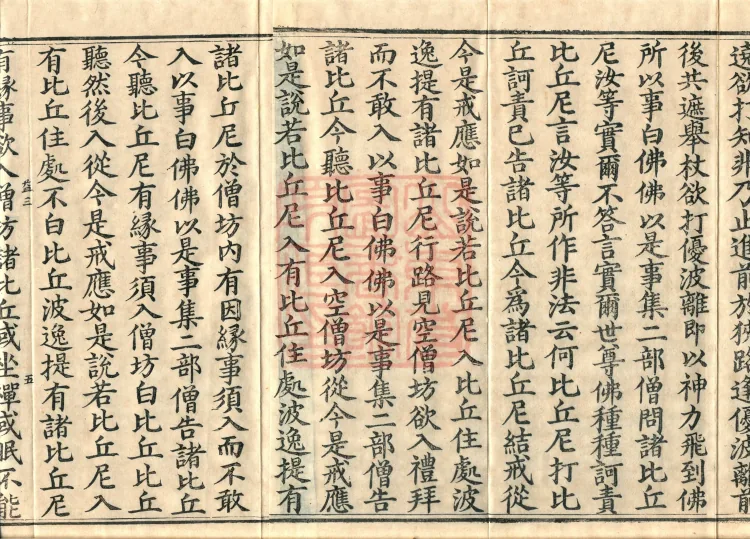 遠欲打知非不止追前於狹路逢優波離前
後共遮舉杖欲打優波離即以神力飛到佛
所以事白佛佛以是事集二部僧問諸比丘
尼汝等實爾不答言實爾世尊佛種種訶責
比丘尼言汝等所作非法云何比丘尼打比
丘訶責已告諸比丘今為諸比丘尼結戒從
今是戒應如是說若比丘尼入比丘住處波
逸提有諸比丘尼行路見空僧坊欲入禮拜
而不敢入以事白佛佛以是事集二部僧告
諸比丘今聽比丘尼入空僧坊從今是戒應
如是說若比丘尼入有比丘住處波逸提有
諸比丘尼於僧坊內有因緣事須入而不敢
入以事白佛佛以是事集二部僧告諸比丘
今聽比丘尼有緣事須入僧坊白比丘比丘
聽然後入從今是戒應如是說若比丘尼入
有比丘住處不白比丘波逸提有諸比丘尼
五
有緣事欲入僧坊諸比丘或坐禪或眠不能